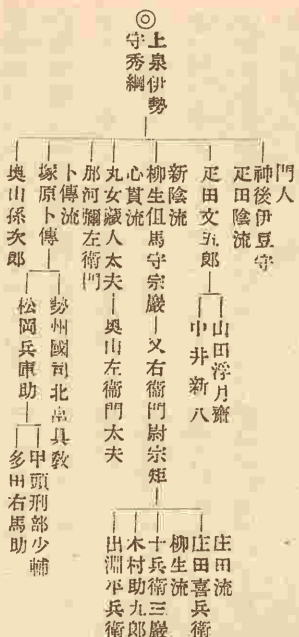 ◎上泉伊勢
守秀綱
門人
神後伊豆守
疋田陰流
疋田文五郎
山田浮月齋
中井新八
新陰流
柳生但馬守宗嚴
又右衞門尉宗矩
庄田流
庄田喜兵衞
柳生流
十兵衞三嚴
木村助九郎
出淵平兵衞
心貫流
丸女藏人太夫
奥山左衞門太夫
那河彌左衞門
卜傳流
塚原卜傳
勢州國司北畠具敎
松岡兵庫助
甲頭刑部少輔
多田右馬助
奥山孫次郎